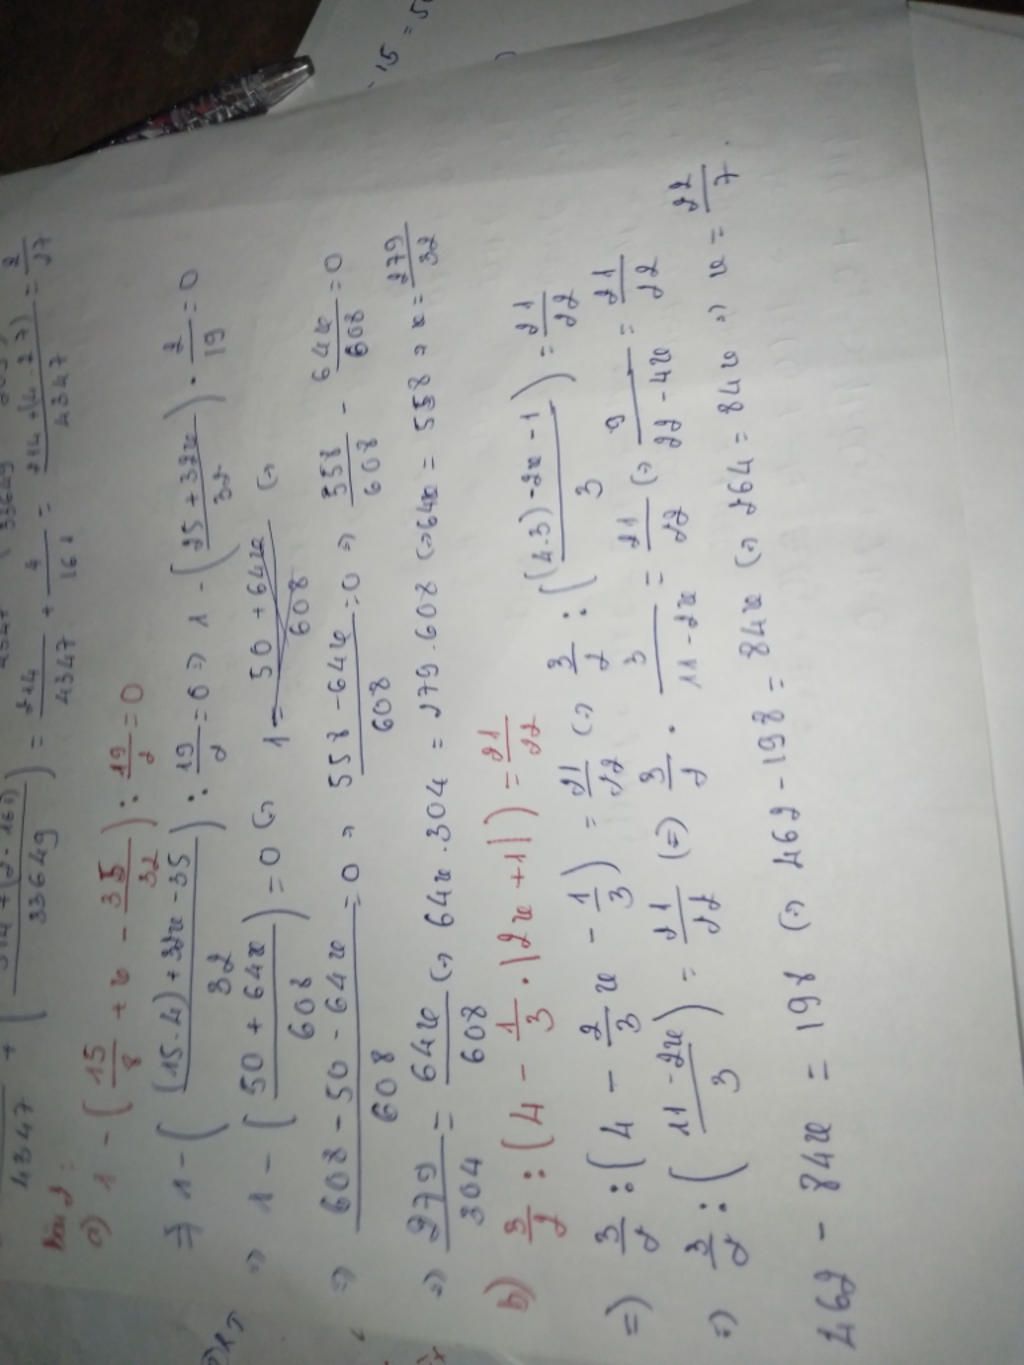 33649
4347 + ( 33649 ) = 214/4347 + 4/161 = 214+(4.27)/4347 = 2/27
Bài 2:
a) 1 - (15/8 + x - 35/32) : 19/2 = 0
=> 1 - ((15.4)+32x-35/32) : 19/2 = 0 => 1 - (25+32x/32) . 2/19 = 0
=> 1 - (50+64x/608) = 0 (=) 1 = 50+64x/608 (=)
=> 608-50-64x/608 = 0 => 558-64x/608 = 0 => 558/608 - 64x/608 = 0
=> 279/304 = 64x/608 (=> 64x.304 = 279.608 (=>64x = 558 => x = 279/32
b) 3/2 : (4 - 1/3 . |2x+1|) = 21/22
=) 3/2 : (4 - 2/3 x - 1/3) = 21/22 (=) 3/2 : ((4.3)-2x-1/3) = 21/22
=) 3/2 : (11-2x/3) = 21/22 (=) 3/2 . 3/11-2x = 21/22 (=) 9/22-4x = 21/22
462 - 84x = 198 (=) 462-198 = 84x (=) 264 = 84x =) x = 22/7.